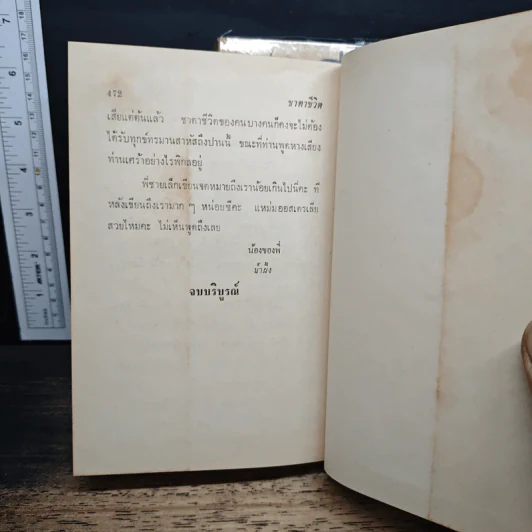 472
ชาตาชีวิต
เสียแต่ต้นแล้ว ชาตาชีวิตของคนบางคนก็คงจะไม่ต้อง
ได้รับทุกข์ทรมานสาหัสถึงปานนี้ ขณะที่ท่านพูดหางเสียง
ท่านเศร้าอย่างไรพิกลอยู่
พี่ชายเล็กเขียนจดหมายถึงเราน้อยเกินไปนี่คะ ที
หลังเขียนถึงเรามาก ๆ หน่อยซีคะ แหม่มออสเตรเลีย
สวยไหมคะ ไม่เห็นพูดถึงเลย
น้องของพี่
จบบริบูรณ์